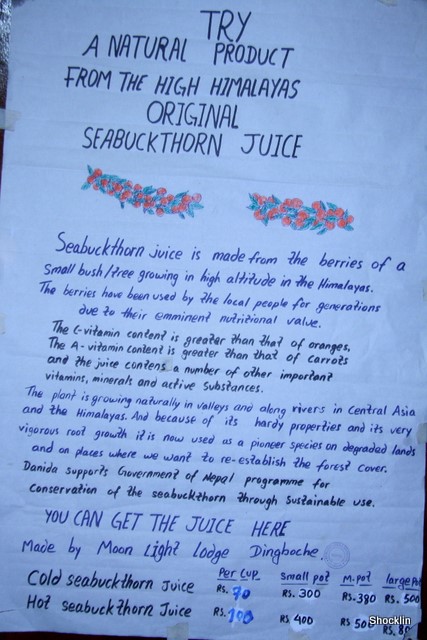 TRY
A NATURAL PRODUCT
FROM THE HIGH HIMALAYAS
ORIGINAL
SEABUCKTHORN JUICE
Seabuckthorn juice is made from the berries of a
Small bush/tree growing in high altitude in the Himalayas.
The berries have been used by the local people for generations
due to their emminent nutritional value.
The C-vitamin content is greater than that of oranges,
The A-vitamin content is greater than that of carrots
and the juice contens a number of other important
vitamins, minerals and active substances.
The plant is growing naturally in valleys and along rivers in Central Asia
and the Himalayas. And because of its hardy properties and its very
vigorous root growth it is now used as a pioneer species on degraded lands
and on places where we want to re-establish the forest cover.
Danida supports Government of Nepal programme for
Conservation of the seabuckthorn through Sustainable use.
YOU CAN GET THE JUICE HERE
Made by Moon Light Lodge Dingboche.
Per Cup Small pot M.pot large
Cold seabuckthorn Juice Rs. 70 Rs. 300 Rs. 390 Rs. 500
Hot seabuckthorn Juice Rs. 100 Rs. 400 Rs. Rs.
Shocklin